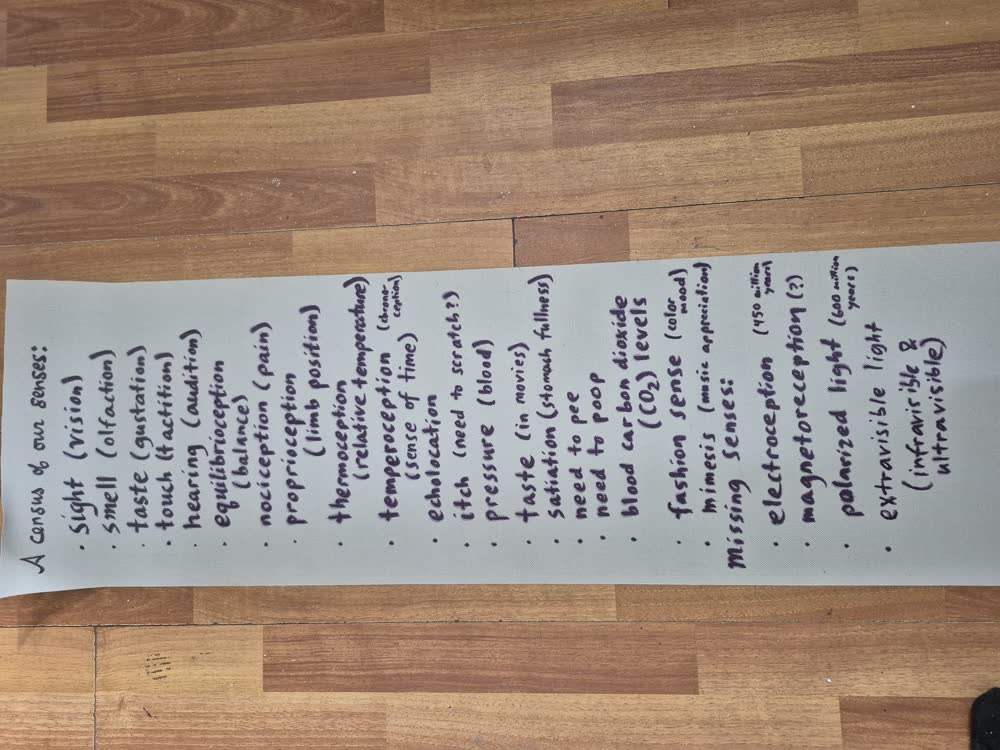 A census of our senses:
· sight (vision)
· smell (olfaction)
· taste (gustation)
· touch (tactition)
· hearing (audition)
· equilibrioception
(balance)
· nociception (pain)
· proprioception
(limb position)
· thermoception
(relative temperature)
· temperoception (chrono-
ception)
(sense of time)
· echolocation
· itch (need to scratch?)
· pressure (blood)
· taste (in movies)
· satiation (stomach fullness)
· need to pee
· need to poop
· blood carbon dioxide
(CO₂) levels
· fashion sense (color
mood)
· mimesis (music appreciation)
Missing senses:
· electroception (450 million
years)
· magnetoreception (?)
· polarized light (600 million
years)
· extravisible light
(infravisible &
ultravisible)